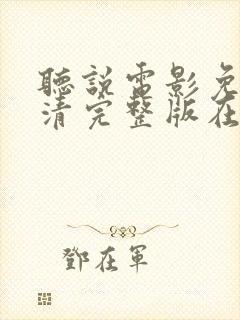 聽說電影免
清完整版在
鄧在軍